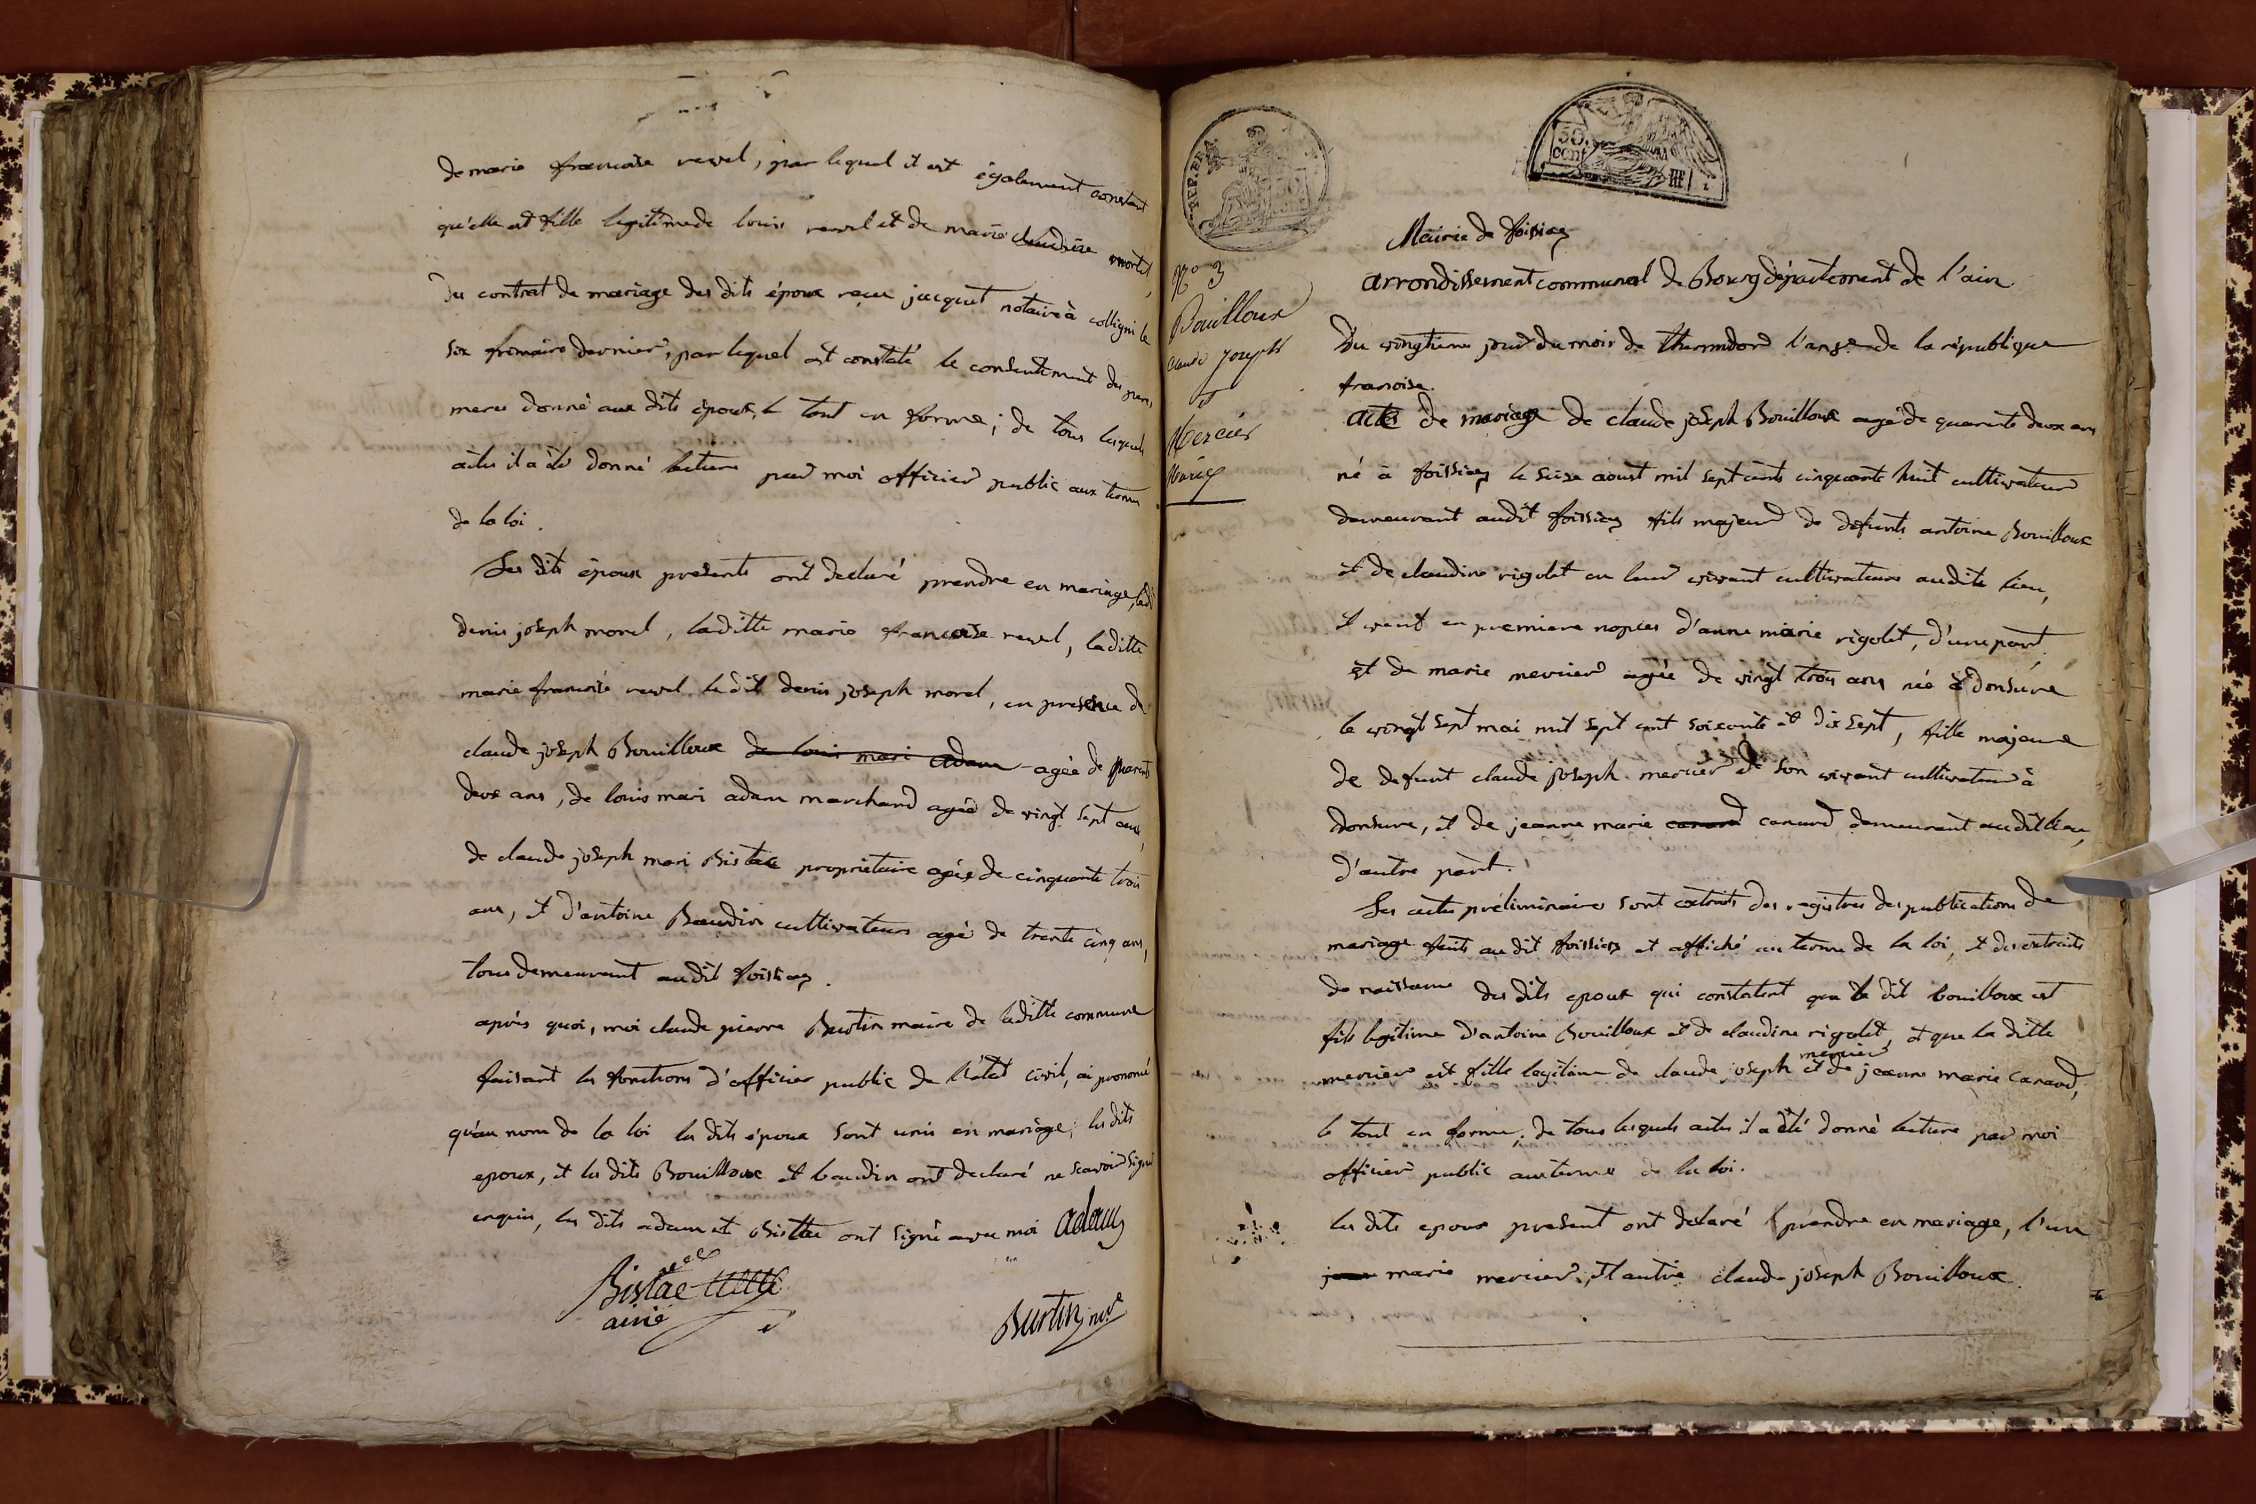 de marie francoise revel, par lequel il est également constant
qu'elle est fille legitime de louis revel et de marie claudine mortel,
Du contrat de mariage des dits époux reçu jacquet notaire à colligni le
six frimaire dernier, par lequel est constaté le consentement des peres
meres donné aux dits époux, le tout en forme; de tous lesquels
actes il a été donné lecture par moi officier public aux termes
de la loi.
Les dits époux presents ont declaré prendre en mariage, ledit
denis joseph morel, laditte marie francoise revel, laditte
marie francoise revel le dit denis joseph morel, en presence de
claude joseph Bouilloux de louis mari adam agée de quarante
deux ans, de louis mari adam marchand agée de vingt sept ans,
de claude joseph mari Bistac propriétaire agée de cinquante trois
ans, et d'antoine Baudin cultivateurs agé de trente cinq ans,
tous demeurant audit foissiay.
après quoi, moi claude pierre Burtin maire de laditte commune
faisant les fonctions d'officier public de l'état civil, ai prononcé
qu'au nom de la loi les dits époux sont unis en mariage; les dits
epoux, et les dits Bouilloux et baudin ont declaré ne scavoir signé
enquis, les dits adam et Bistac ont signé avec moi adam
Bistac
ainé
Burtin, mre
REP. FRA.
50
cen.
Mairie de foissiay
arrondissement communal de Bourg département de l'ain
N° 3
Bouilloux
claude joseph
et
Mercier
Marie
Du vingtieme jour du mois de thermidor l'an 8e de la république
francoise.
acte de mariage de claude joseph Bouilloux agé de quarante deux ans
né à foissiay le seize aoust mil sept cents cinquante huit cultivateur
demeurant audit foissiay fils majeur de defunts antoine Bouilloux
et de claudine rigolet en leur vivant cultivateurs audite lieu,
et veuf en premiere nopces d'anne marie rigolet, d'une part,
et de marie mercier agée de vingt trois ans née à donsure
le vingt sept mai mil sept cent soixante et dix sept, fille majeure
de defunt claude joseph mercier de son vivant cultivateur à
donsure, et de jeanne marie canard canard demeurant audit lieu,
d'autre part.
Les actes préliminaires sont extraits des registres des publications de
mariage faits au dit foissiay et affiché au terme de la loi, et des extraits
de naissance des dits epoux qui constatent que le dit bouilloux est
fils legitime d'antoine Bouilloux et de claudine rigolet, et que la ditte
mercier est fille legitime de claude joseph mercier et de jeanne marie canard,
le tout en forme; de tous lesquels actes il a été donné lecture par moi
officier public au terme de la loi.
les dits epoux present ont declaré prendre en mariage, l'un
marie mercier, et l'autre claude joseph Bouilloux.